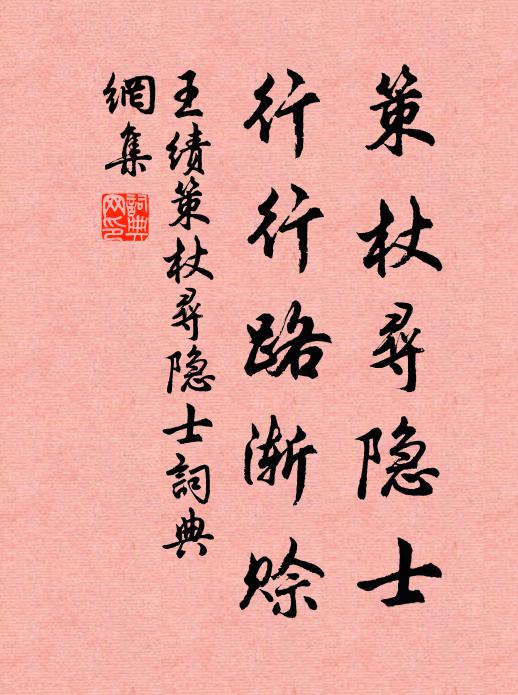 策杖寻隐士
行行路渐赊
王绩策杖寻隐士詞典
網集
詞典网印